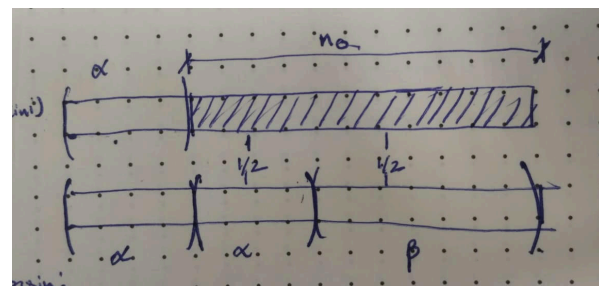 no
α
1/2 1/2
α α β